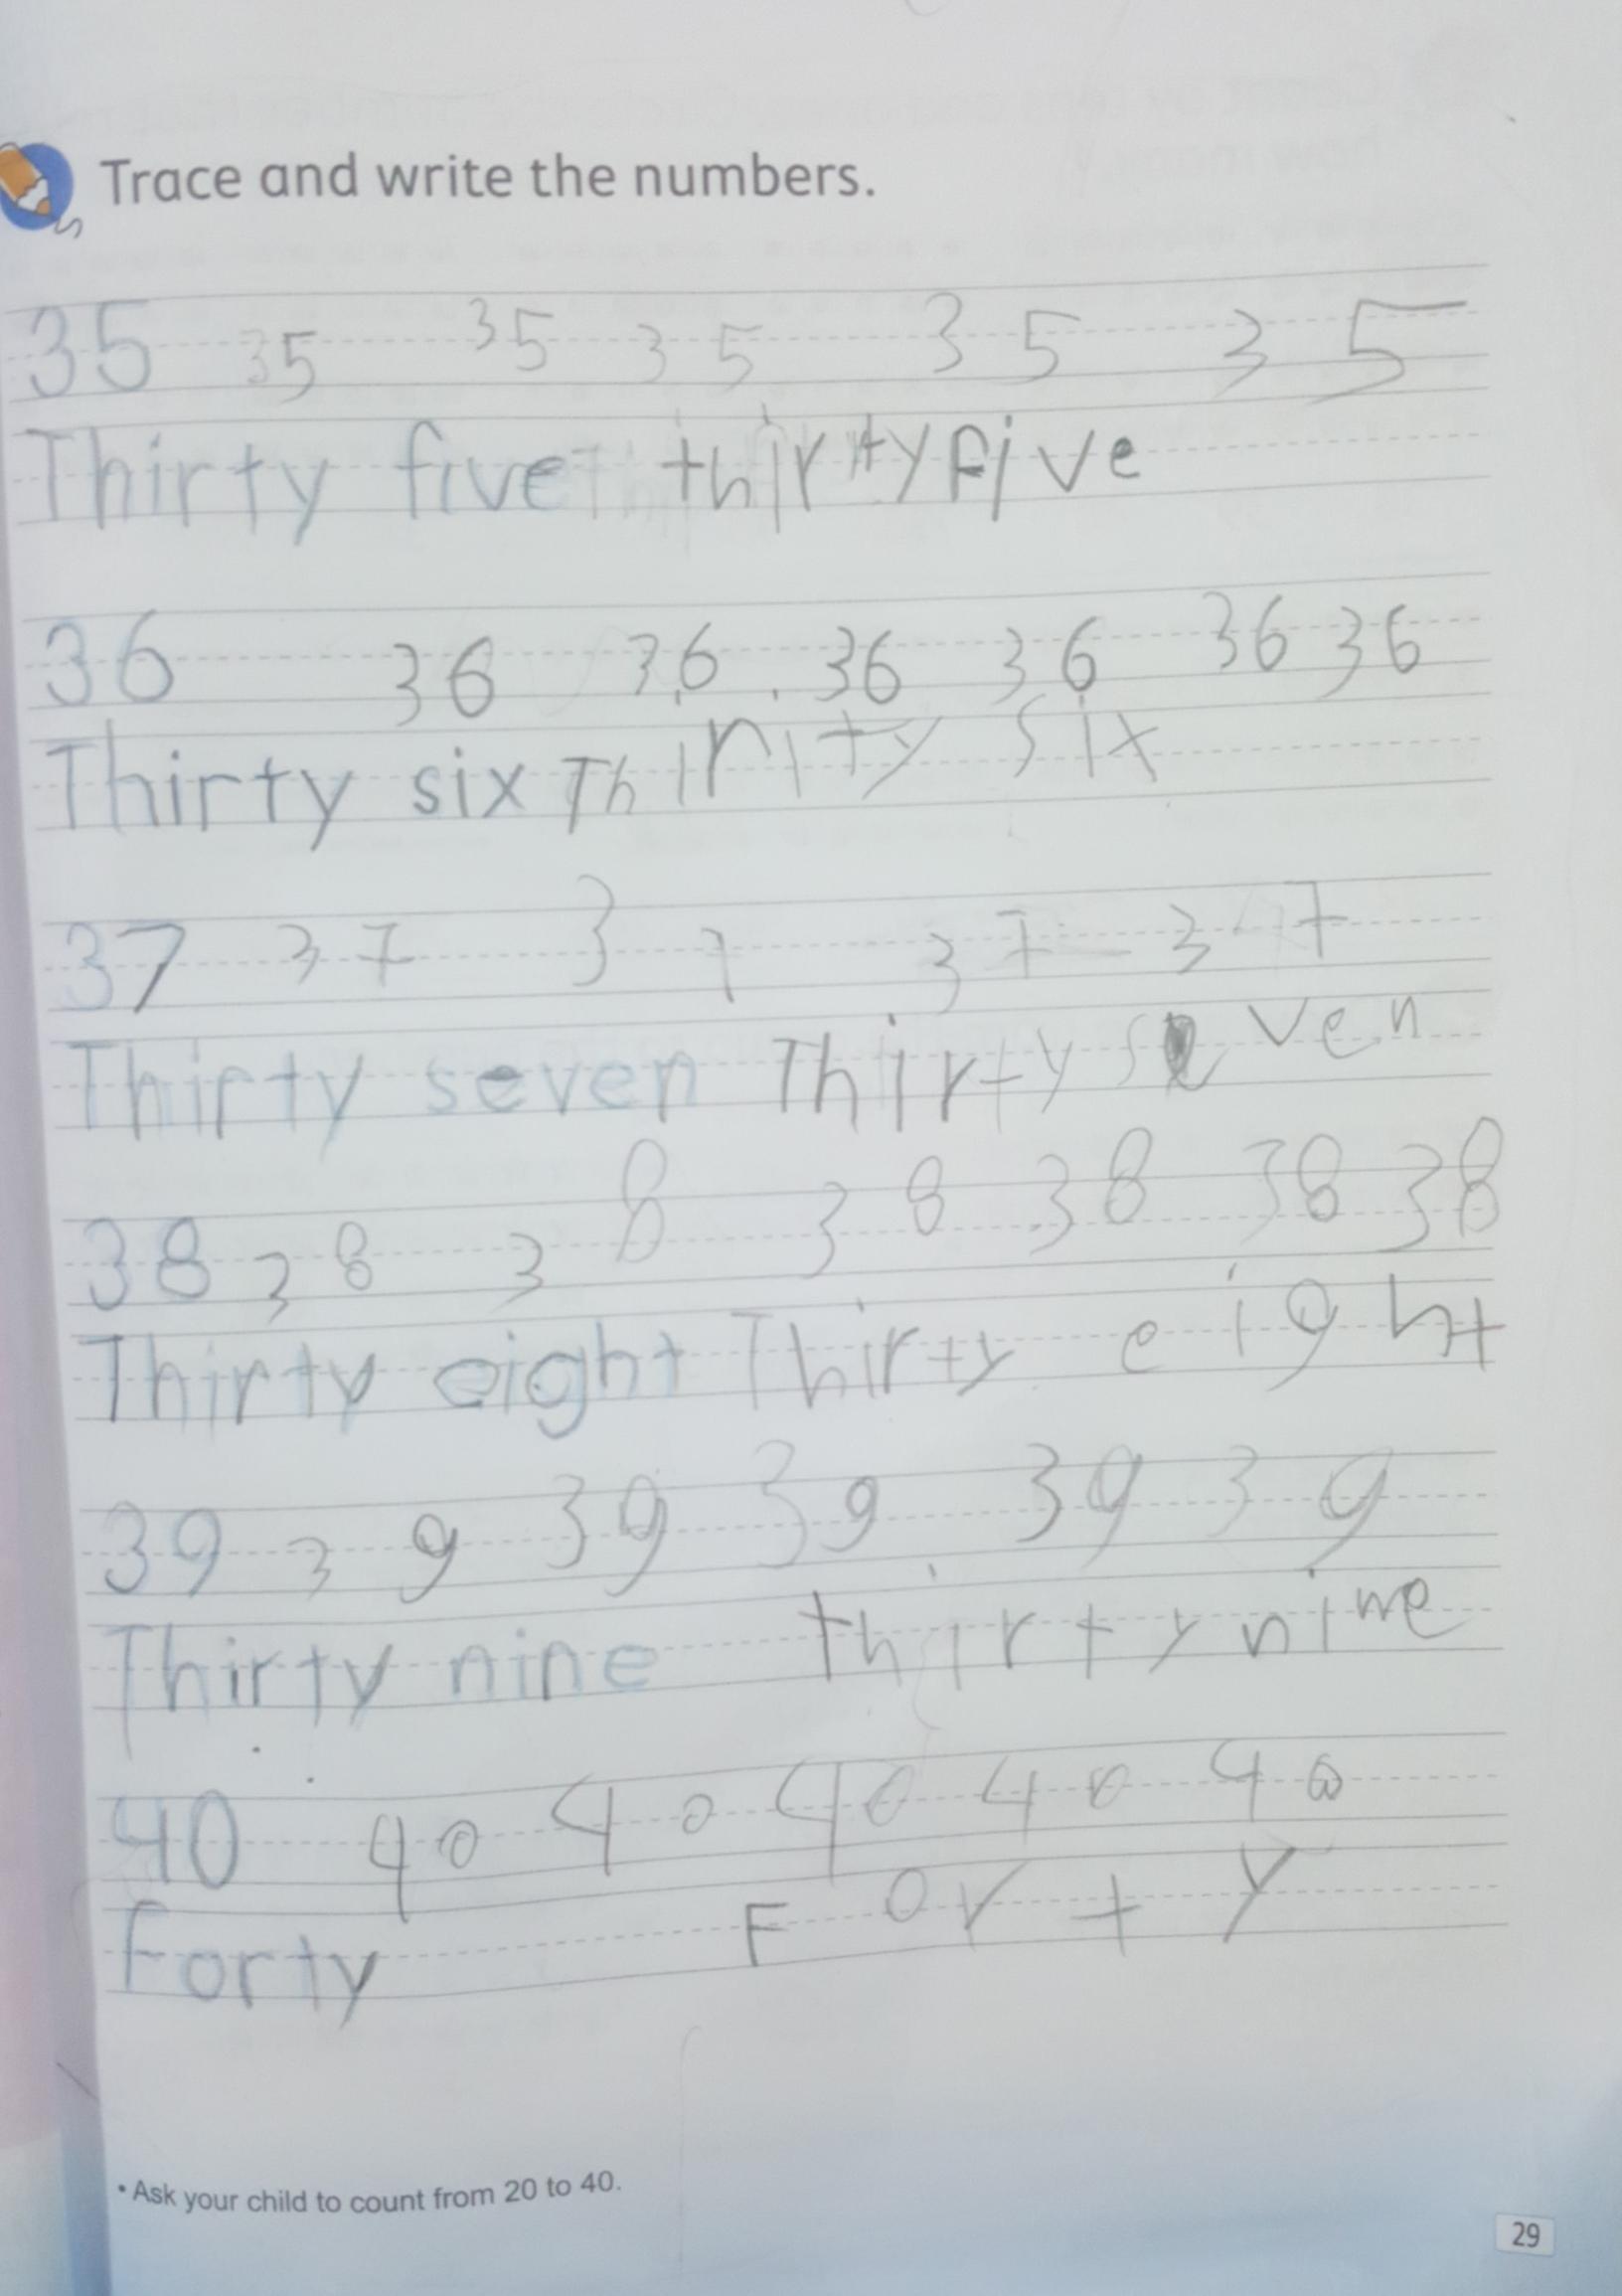 Trace and write the numbers.
35 35 35 35 35 35
Thirty five thirty Five
36 36 36 36 36 36 36
Thirty six Thirity six
37 37 37 37 37
Thirty seven Thirty seven
38 38 38 38 38 38 38
Thirty eight Thirty eight
39 39 39 39 39 39
Thirty nine thirty nine
40 40 40 40 40 40
Forty Forty
• Ask your child to count from 20 to 40.
29